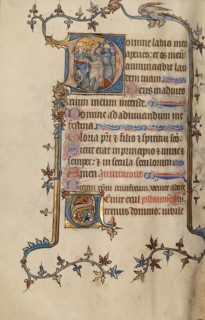 Domine labia mea
aperies: et os meum
annunciabit lau
dem tuam. Deus in adiuto
rium meum intende.
Domine ad adiuvandum me
festina.
Gloria pri et filio et spiritui sco
Sicut erat in principio et nunc et
semper: et in secula seculorum
Amen. Invitatorium
Regem venite
Venite exul
ternus domino: iubile